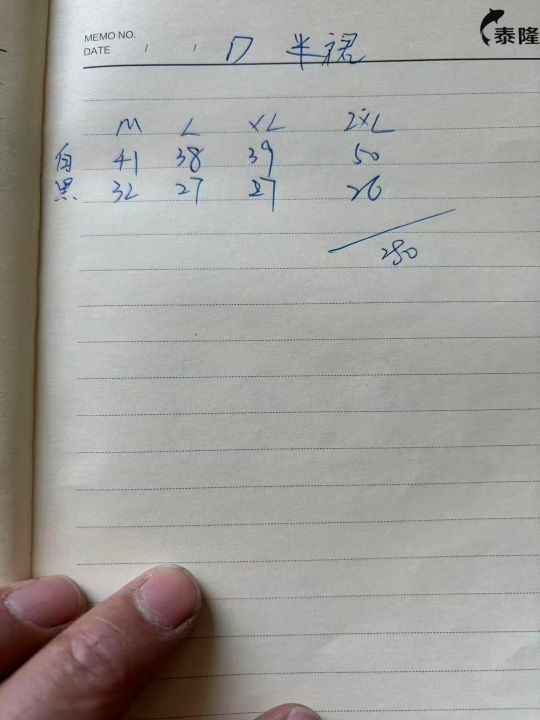 MEMO NO.
DATE / /
泰隆
D 半裙
M L XL 2XL
白 41 38 39 50
黑 32 27 27 26
280